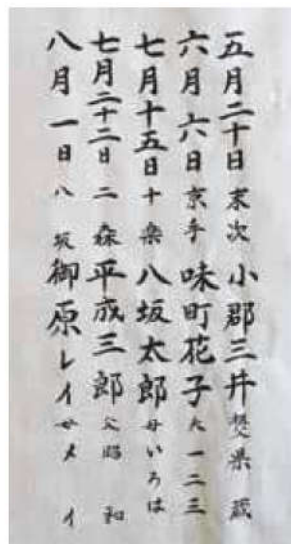 五月二十日 末次 小郡三井 焚県蔵
六月六日 京手 味町花子 夫一二三
七月十五日 十楽 八坂太郎 母いろは
七月二十二日 二森 平成三郎 父昭和
八月一日 八坂 御原レイ 女メイ